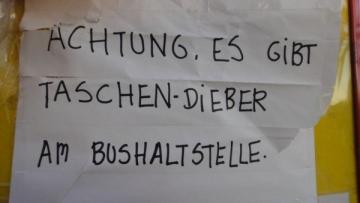 ÄCHTUNG, ES GiBT
TASCHEN-DiEBER
AM BUSHALTSTELLE.